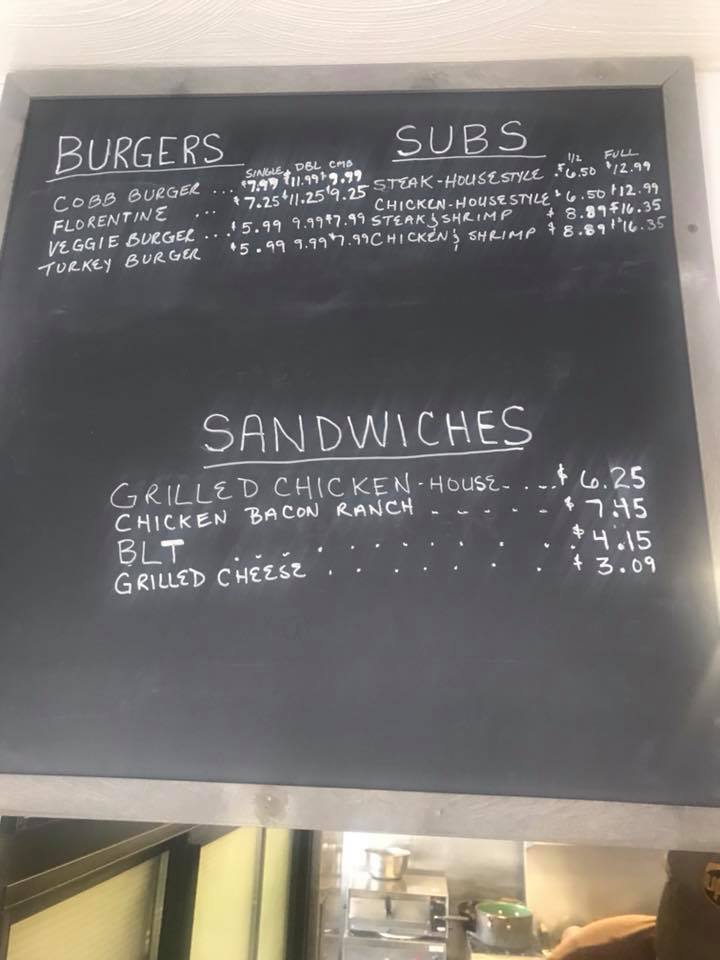 BURGERS
SINGLE DBL CMB
COBB BURGER ... $7.99 $11.99 $9.99
FLORENTINE ... $7.25 $11.25 $9.25
VEGGIE BURGER ... $5.99 9.99 $7.99
TURKEY BURGER $5.99 9.99 $7.99
SUBS
1/2 FULL
STEAK-HOUSESTYLE $6.50 $12.99
CHICKEN-HOUSESTYLE $6.50 $12.99
STEAK & SHRIMP $8.89 $16.35
CHICKEN & SHRIMP $8.89 $16.35
SANDWICHES
GRILLED CHICKEN-HOUSE.... $6.25
CHICKEN BACON RANCH - - - - - $7.45
BLT . . . . . . . . . . $4.15
GRILLED CHEESE . . . . . . . $3.09